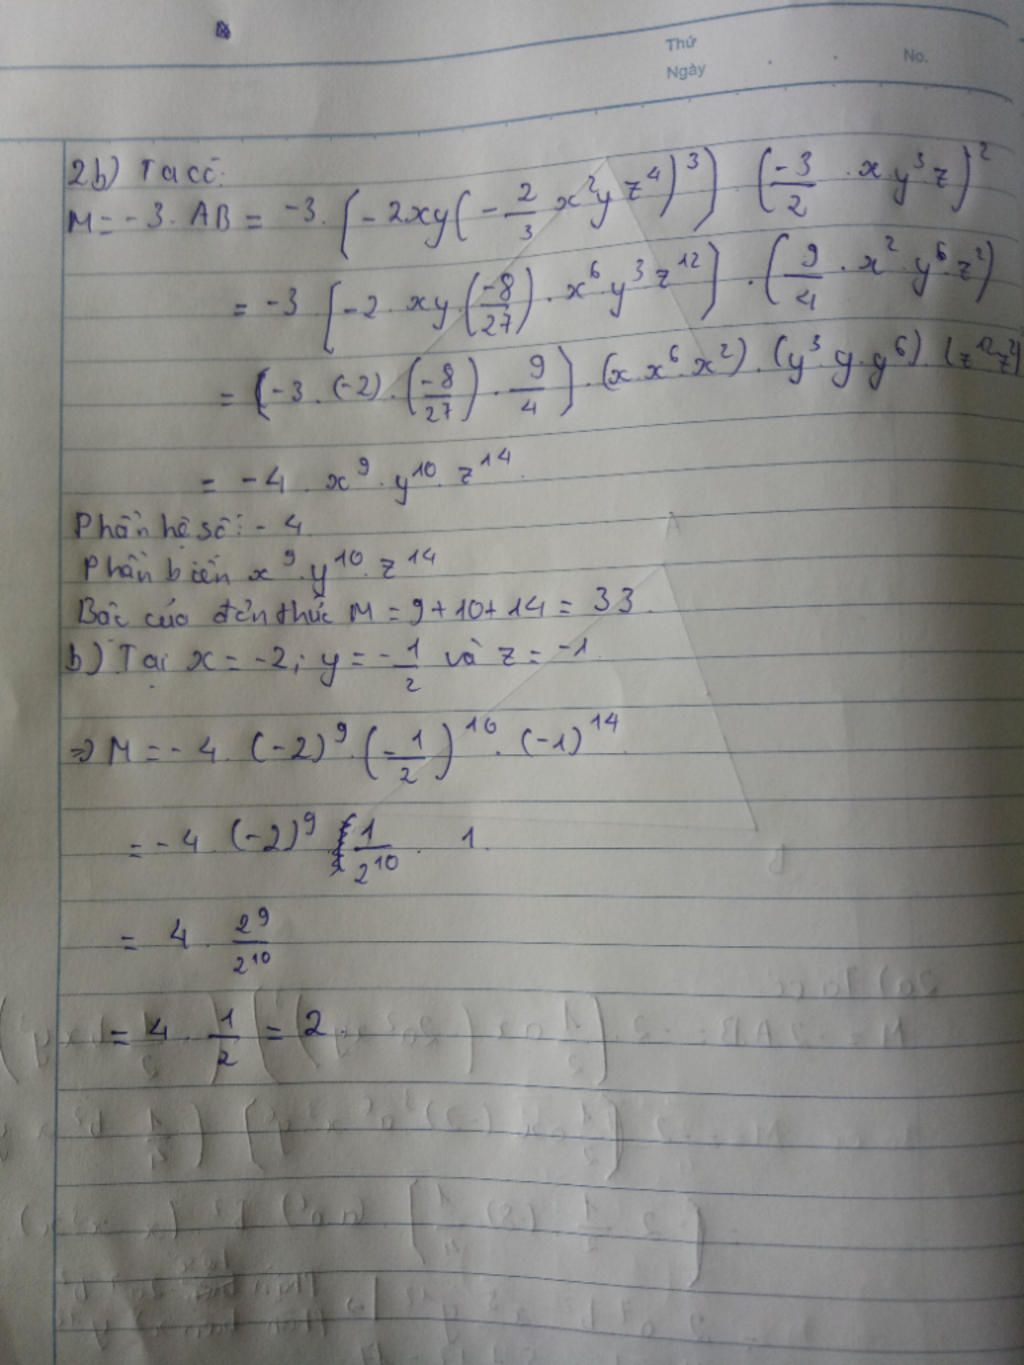 Thứ
Ngày
No.
2b) Ta có:
M = -3. AB = -3. [-2xy(-2/3 x²yz⁴)³] . (-3/2 . xy³z)²
= -3 [-2 . xy (-8/27) . x⁶y³z¹²] . (9/4 . x² . y⁶ . z²)
= [-3 . (-2) . (-8/27) . 9/4] . (x . x⁶ . x²) . (y³ . y . y⁶) . (z¹² z²)
= -4 . x⁹ . y¹⁰ . z¹⁴.
Phần hệ số: -4
Phần biến x⁹ . y¹⁰ . z¹⁴
Bậc của đơn thức M = 9+10+14 = 33.
b) Tại x = -2; y = -1/2 và z = -1.
=> M = -4 . (-2)⁹ . (-1/2)¹⁰ . (-1)¹⁴.
= -4 (-2)⁹ 1/2¹⁰ . 1.
= 4 . 2⁹/2¹⁰
= 4 . 1/2 = 2.